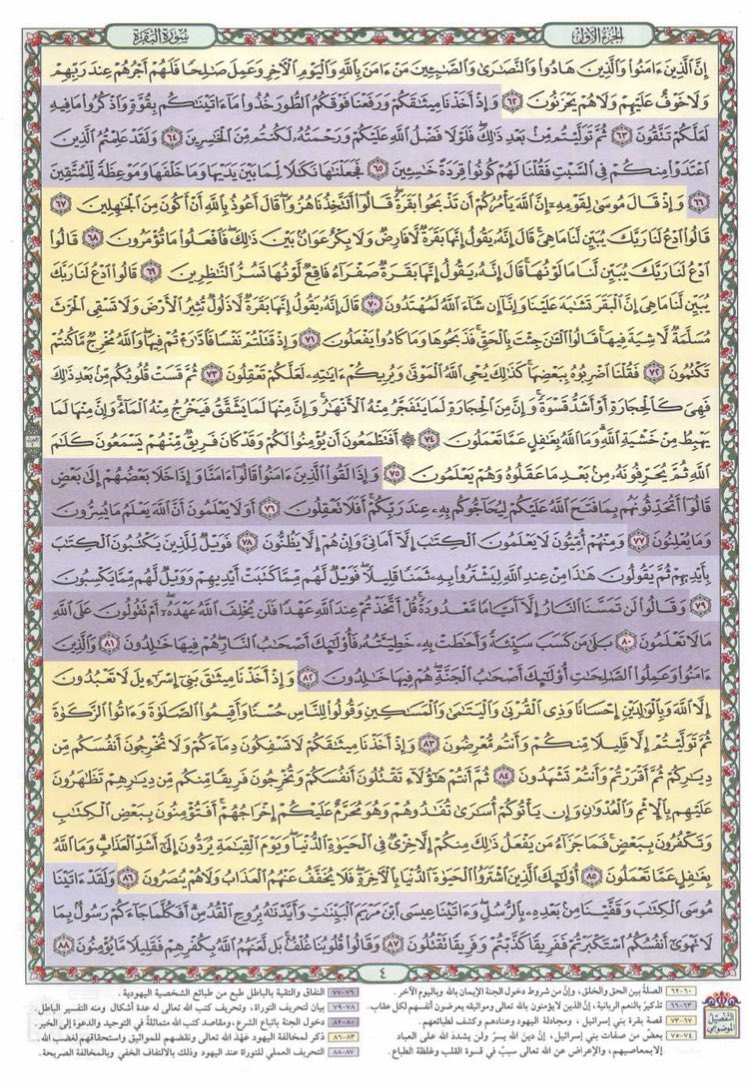 الجزء الأول
سورة البقرة
إِنَّ الَّذِينَ ءَامَنُوا وَالَّذِينَ هَادُوا وَالنَّصَارَىٰ وَالصَّابِئِينَ مَنْ ءَامَنَ بِاللَّهِ وَالْيَوْمِ الْآخِرِ وَعَمِلَ صَالِحًا فَلَهُمْ أَجْرُهُمْ عِندَ رَبِّهِمْ
وَلَا خَوْفٌ عَلَيْهِمْ وَلَا هُمْ يَحْزَنُونَ ٦٢ وَإِذْ أَخَذْنَا مِيثَاقَكُمْ وَرَفَعْنَا فَوْقَكُمُ الطُّورَ خُذُوا مَا ءَاتَيْنَاكُم بِقُوَّةٍ وَاذْكُرُوا مَا فِيهِ
لَعَلَّكُمْ تَتَّقُونَ ٦٣ ثُمَّ تَوَلَّيْتُم مِّن بَعْدِ ذَٰلِكَ فَلَوْلَا فَضْلُ اللَّهِ عَلَيْكُمْ وَرَحْمَتُهُ لَكُنتُم مِّنَ الْخَاسِرِينَ ٦٤ وَلَقَدْ عَلِمْتُمُ الَّذِينَ
اعْتَدَوْا مِنكُمْ فِي السَّبْتِ فَقُلْنَا لَهُمْ كُونُوا قِرَدَةً خَاسِئِينَ ٦٥ فَجَعَلْنَاهَا نَكَالًا لِّمَا بَيْنَ يَدَيْهَا وَمَا خَلْفَهَا وَمَوْعِظَةً لِّلْمُتَّقِينَ
٦٦ وَإِذْ قَالَ مُوسَىٰ لِقَوْمِهِ إِنَّ اللَّهَ يَأْمُرُكُمْ أَن تَذْبَحُوا بَقَرَةً قَالُوا أَتَتَّخِذُنَا هُزُوًا قَالَ أَعُوذُ بِاللَّهِ أَنْ أَكُونَ مِنَ الْجَاهِلِينَ ٦٧
قَالُوا ادْعُ لَنَا رَبَّكَ يُبَيِّن لَّنَا مَا هِيَ قَالَ إِنَّهُ يَقُولُ إِنَّهَا بَقَرَةٌ لَّا فَارِضٌ وَلَا بِكْرٌ عَوَانٌ بَيْنَ ذَٰلِكَ فَافْعَلُوا مَا تُؤْمَرُونَ ٦٨ قَالُوا
ادْعُ لَنَا رَبَّكَ يُبَيِّن لَّنَا مَا لَوْنُهَا قَالَ إِنَّهُ يَقُولُ إِنَّهَا بَقَرَةٌ صَفْرَاءُ فَاقِعٌ لَّوْنُهَا تَسُرُّ النَّاظِرِينَ ٦٩ قَالُوا ادْعُ لَنَا رَبَّكَ
يُبَيِّن لَّنَا مَا هِيَ إِنَّ الْبَقَرَ تَشَابَهَ عَلَيْنَا وَإِنَّا إِن شَاءَ اللَّهُ لَمُهْتَدُونَ ٧٠ قَالَ إِنَّهُ يَقُولُ إِنَّهَا بَقَرَةٌ لَّا ذَلُولٌ تُثِيرُ الْأَرْضَ وَلَا تَسْقِي الْحَرْثَ
مُسَلَّمَةٌ لَّا شِيَةَ فِيهَا قَالُوا الْآنَ جِئْتَ بِالْحَقِّ فَذَبَحُوهَا وَمَا كَادُوا يَفْعَلُونَ ٧١ وَإِذْ قَتَلْتُمْ نَفْسًا فَادَّارَأْتُمْ فِيهَا وَاللَّهُ مُخْرِجٌ مَّا كُنتُمْ
تَكْتُمُونَ ٧٢ فَقُلْنَا اضْرِبُوهُ بِبَعْضِهَا كَذَٰلِكَ يُحْيِي اللَّهُ الْمَوْتَىٰ وَيُرِيكُمْ ءَايَاتِهِ لَعَلَّكُمْ تَعْقِلُونَ ٧٣ ثُمَّ قَسَتْ قُلُوبُكُم مِّن بَعْدِ ذَٰلِكَ
فَهِيَ كَالْحِجَارَةِ أَوْ أَشَدُّ قَسْوَةً وَإِنَّ مِنَ الْحِجَارَةِ لَمَا يَتَفَجَّرُ مِنْهُ الْأَنْهَارُ وَإِنَّ مِنْهَا لَمَا يَشَّقَّقُ فَيَخْرُجُ مِنْهُ الْمَاءُ وَإِنَّ مِنْهَا لَمَا
يَهْبِطُ مِنْ خَشْيَةِ اللَّهِ وَمَا اللَّهُ بِغَافِلٍ عَمَّا تَعْمَلُونَ ٧٤ ۞ أَفَتَطْمَعُونَ أَن يُؤْمِنُوا لَكُمْ وَقَدْ كَانَ فَرِيقٌ مِّنْهُمْ يَسْمَعُونَ كَلَامَ
اللَّهِ ثُمَّ يُحَرِّفُونَهُ مِن بَعْدِ مَا عَقَلُوهُ وَهُمْ يَعْلَمُونَ ٧٥ وَإِذَا لَقُوا الَّذِينَ ءَامَنُوا قَالُوا ءَامَنَّا وَإِذَا خَلَا بَعْضُهُمْ إِلَىٰ بَعْضٍ
قَالُوا أَتُحَدِّثُونَهُم بِمَا فَتَحَ اللَّهُ عَلَيْكُمْ لِيُحَاجُّوكُم بِهِ عِندَ رَبِّكُمْ أَفَلَا تَعْقِلُونَ ٧٦ أَوَلَا يَعْلَمُونَ أَنَّ اللَّهَ يَعْلَمُ مَا يُسِرُّونَ
وَمَا يُعْلِنُونَ ٧٧ وَمِنْهُمْ أُمِّيُّونَ لَا يَعْلَمُونَ الْكِتَابَ إِلَّا أَمَانِيَّ وَإِنْ هُمْ إِلَّا يَظُنُّونَ ٧٨ فَوَيْلٌ لِّلَّذِينَ يَكْتُبُونَ الْكِتَابَ
بِأَيْدِيهِمْ ثُمَّ يَقُولُونَ هَٰذَا مِنْ عِندِ اللَّهِ لِيَشْتَرُوا بِهِ ثَمَنًا قَلِيلًا فَوَيْلٌ لَّهُم مِّمَّا كَتَبَتْ أَيْدِيهِمْ وَوَيْلٌ لَّهُم مِّمَّا يَكْسِبُونَ
٧٩ وَقَالُوا لَن تَمَسَّنَا النَّارُ إِلَّا أَيَّامًا مَّعْدُودَةً قُلْ أَتَّخَذْتُمْ عِندَ اللَّهِ عَهْدًا فَلَن يُخْلِفَ اللَّهُ عَهْدَهُ أَمْ تَقُولُونَ عَلَى اللَّهِ
مَا لَا تَعْلَمُونَ ٨٠ بَلَىٰ مَن كَسَبَ سَيِّئَةً وَأَحَاطَتْ بِهِ خَطِيئَتُهُ فَأُولَٰئِكَ أَصْحَابُ النَّارِ هُمْ فِيهَا خَالِدُونَ ٨١ وَالَّذِينَ
ءَامَنُوا وَعَمِلُوا الصَّالِحَاتِ أُولَٰئِكَ أَصْحَابُ الْجَنَّةِ هُمْ فِيهَا خَالِدُونَ ٨٢ وَإِذْ أَخَذْنَا مِيثَاقَ بَنِي إِسْرَائِيلَ لَا تَعْبُدُونَ
إِلَّا اللَّهَ وَبِالْوَالِدَيْنِ إِحْسَانًا وَذِي الْقُرْبَىٰ وَالْيَتَامَىٰ وَالْمَسَاكِينِ وَقُولُوا لِلنَّاسِ حُسْنًا وَأَقِيمُوا الصَّلَاةَ وَءَاتُوا الزَّكَاةَ
ثُمَّ تَوَلَّيْتُمْ إِلَّا قَلِيلًا مِّنكُمْ وَأَنتُم مُّعْرِضُونَ ٨٣ وَإِذْ أَخَذْنَا مِيثَاقَكُمْ لَا تَسْفِكُونَ دِمَاءَكُمْ وَلَا تُخْرِجُونَ أَنفُسَكُم مِّن
دِيَارِكُمْ ثُمَّ أَقْرَرْتُمْ وَأَنتُمْ تَشْهَدُونَ ٨٤ ثُمَّ أَنتُمْ هَٰؤُلَاءِ تَقْتُلُونَ أَنفُسَكُمْ وَتُخْرِجُونَ فَرِيقًا مِّنكُم مِّن دِيَارِهِمْ تَظَاهَرُونَ
عَلَيْهِم بِالْإِثْمِ وَالْعُدْوَانِ وَإِن يَأْتُوكُمْ أُسَارَىٰ تُفَادُوهُمْ وَهُوَ مُحَرَّمٌ عَلَيْكُمْ إِخْرَاجُهُمْ أَفَتُؤْمِنُونَ بِبَعْضِ الْكِتَابِ
وَتَكْفُرُونَ بِبَعْضٍ فَمَا جَزَاءُ مَن يَفْعَلُ ذَٰلِكَ مِنكُمْ إِلَّا خِزْيٌ فِي الْحَيَاةِ الدُّنْيَا وَيَوْمَ الْقِيَامَةِ يُرَدُّونَ إِلَىٰ أَشَدِّ الْعَذَابِ وَمَا اللَّهُ
بِغَافِلٍ عَمَّا تَعْمَلُونَ ٨٥ أُولَٰئِكَ الَّذِينَ اشْتَرَوُا الْحَيَاةَ الدُّنْيَا بِالْآخِرَةِ فَلَا يُخَفَّفُ عَنْهُمُ الْعَذَابُ وَلَا هُمْ يُنصَرُونَ ٨٦ وَلَقَدْ ءَاتَيْنَا
مُوسَى الْكِتَابَ وَقَفَّيْنَا مِن بَعْدِهِ بِالرُّسُلِ وَءَاتَيْنَا عِيسَى ابْنَ مَرْيَمَ الْبَيِّنَاتِ وَأَيَّدْنَاهُ بِرُوحِ الْقُدُسِ أَفَكُلَّمَا جَاءَكُمْ رَسُولٌ بِمَا
لَا تَهْوَىٰ أَنفُسُكُمُ اسْتَكْبَرْتُمْ فَفَرِيقًا كَذَّبْتُمْ وَفَرِيقًا تَقْتُلُونَ ٨٧ وَقَالُوا قُلُوبُنَا غُلْفٌ بَل لَّعَنَهُمُ اللَّهُ بِكُفْرِهِمْ فَقَلِيلًا مَّا يُؤْمِنُونَ ٨٨
٤
التفصيل الموضوعي
٦٠-٦٢ الصلة بين الحق والخلق، وإنّ من شروط دخول الجنة الإيمان بالله وباليوم الآخر.
٦٣-٦٦ تذكيرٌ بالنعم الربانية، إنّ الذين لا يؤمنون بالله تعالى ومواثيقه يعرضون أنفسهم لكل عقاب.
٦٧-٧٣ قصة بقرة بني إسرائيل، ومجادلة اليهود وعنادهم وكشف لطبائعهم.
٧٤-٧٥ بعضٌ من صفات بني إسرائيل، إنّ دين الله يسرٌ ولن يشدد الله على العباد
إلا بمعاصيهم، والإعراض عن الله تعالى سببٌ في قسوة القلب وغلظة الطباع.
٧٦-٧٧ النفاق والتقية بالباطل طبع من طبائع الشخصية اليهودية.
٧٨-٧٩ بيان لتحريف التوراة، وتحريف كتب الله تعالى له عدة أشكال ومنه التفسير الباطل.
٨٠-٨٢ دخول الجنة باتباع الشرع، ومقاصد كتب الله متماثلةٌ في التوحيد والدعوة إلى الخير.
٨٣-٨٦ ذكر لمخالفة اليهود عهدَ الله تعالى ونقضهم للمواثيق واستحقاقهم لغضب الله.
٨٧-٨٨ التحريف العملي للتوراة عند اليهود وذلك بالالتفاف الخفي وبالمخالفة الصريحة.